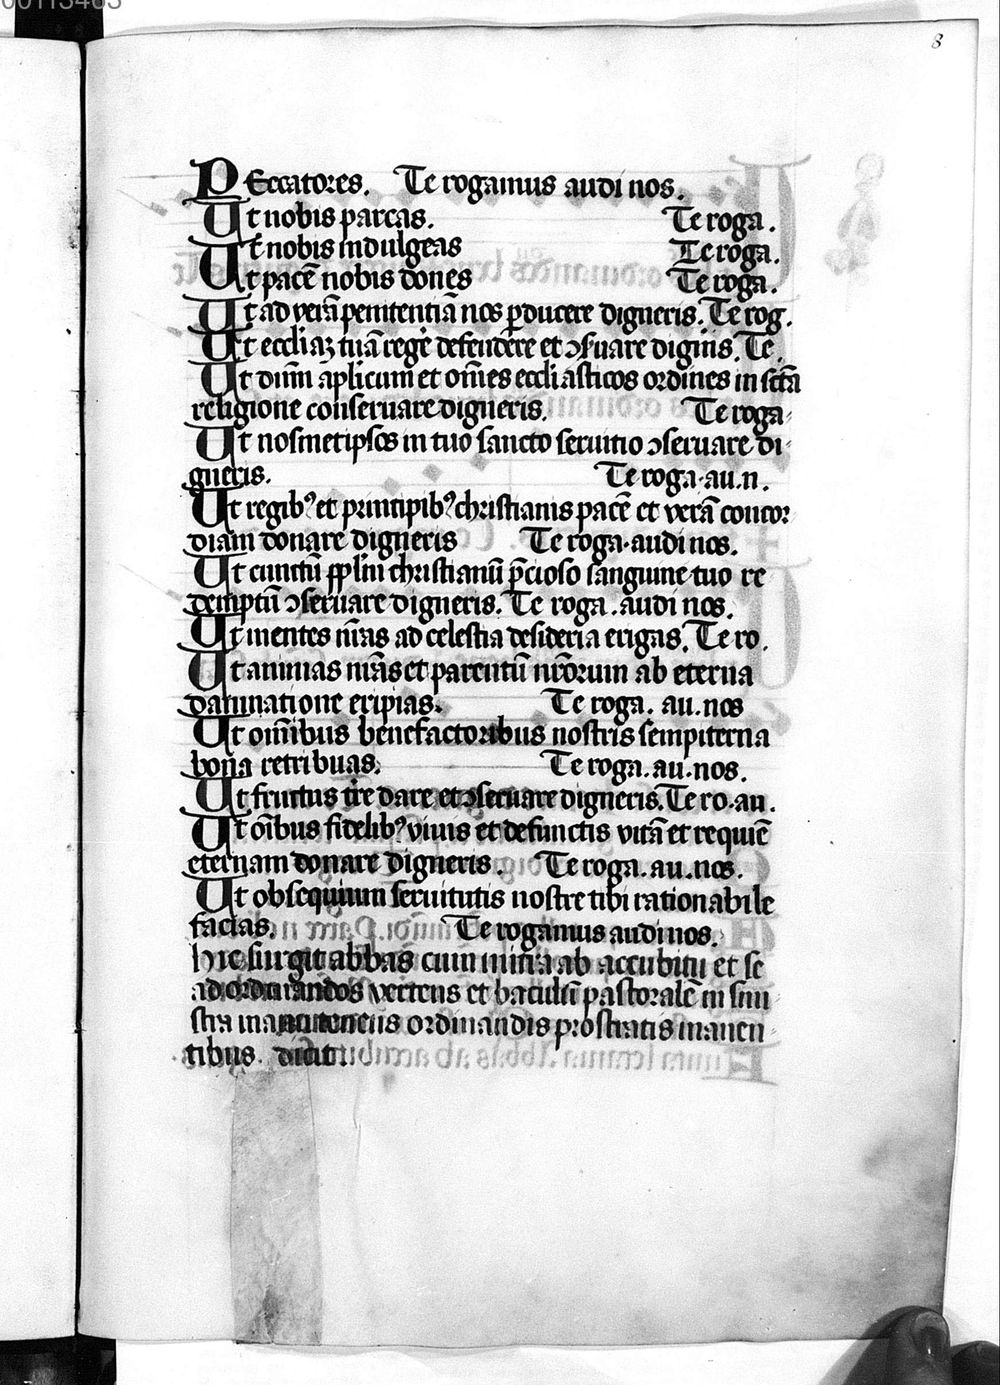 00113463
8
PEccatores. Te rogamus audi nos.
Ut nobis parcas. Te roga.
Ut nobis indulgeas Te roga.
Ut pacē nobis dones Te roga.
Ut ad verā penitentiā nos ꝑducere digneris. Te rog.
Ut eccliaꝫ tuā rege᷑ defendere et ꝯẜuare dignis. Te.
Ut dūm ap̄licum et om̄es eccliasticos ordines in sc̄tā
religione conseruare digneris. Te roga
Ut nosmetipsos in tuo sancto seruitio ꝯseruare di
gneris. Te roga. au. n.
Ut regibꝰ et principibꝰ christianis pacē et verā concor
diam donare digneris Te roga. audi nos.
Ut cunctū pp̄lm christianū p̄cioso sanguine tuo re
demptū ꝯseruare digneris. Te roga. audi nos.
Ut mentes nr̄as ad celestia desideria erigas. Te ro.
Ut animas nr̄as et parentū nr̄orum ab eterna
damnatione eripias. Te roga. au. nos
Ut om̄ibus benefactoribus nostris sempiterna
bona retribuas. Te roga. au. nos.
Ut fructus tr̄e dare et ꝯseruare digneris. Te ro. au.
Ut oībus fidelibꝰ viuis et defunctis vitā et requiē
eternam donare digneris. Te roga. au. nos.
Ut obsequium seruitutis nostre tibi rationabile
facias. Te rogamus audi nos.
hic surgit abbas cum mitra ab accubitu et se
ad ordinandos vertens et baculū pastoralē in sini
stra manu tenens ordinandis prostratis manen
tibus dicit.